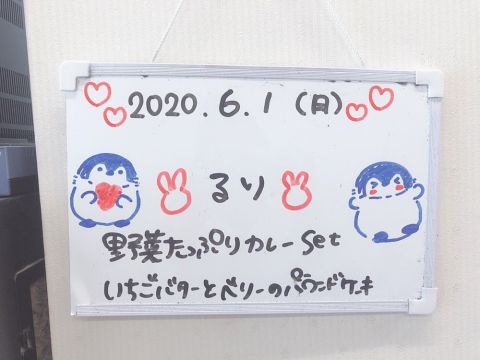 2020.6.1(月)
るり
野菜たっぷりカレーSet
いちごバターとベリーのパウンドケーキ